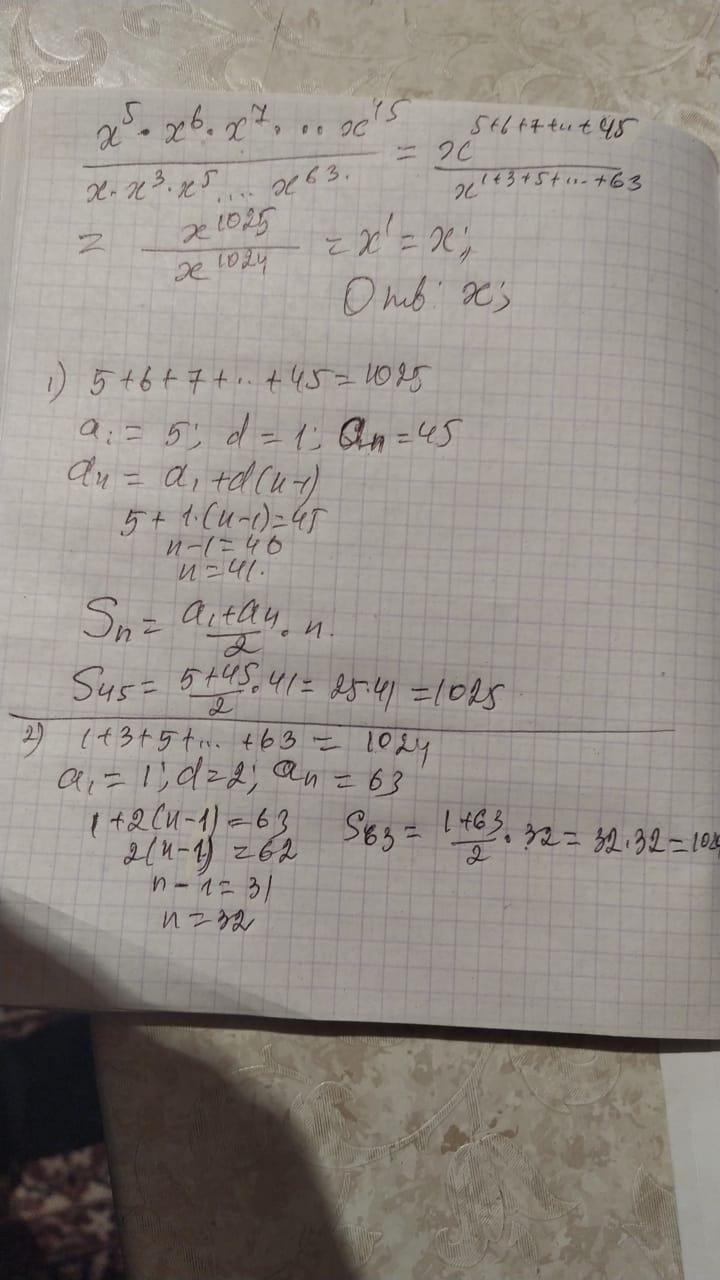 x⁵·x⁶·x⁷·...x⁴⁵ / x·x³·x⁵....x⁶³· = x^(5+6+7+...+45) / x^(1+3+5+...+63)
= x¹⁰²⁵ / x¹⁰²⁴ = x¹ = x;
Отв: x;
1) 5+6+7+...+45=1025
a₁ = 5; d = 1; aₙ = 45
aₙ = a₁ + d(n-1)
5 + 1·(n-1)=45
n-1=40
n=41.
Sₙ = (a₁+aₙ)/2 · n.
S₄₅ = (5+45)/2 · 41 = 25·41 = 1025
2) 1+3+5+... +63 = 1024
a₁ = 1; d=2; aₙ = 63
1+2(n-1)=63
2(n-1) =62
n-1=31
n=32
S₆₃ = (1+63)/2 · 32 = 32·32=1024